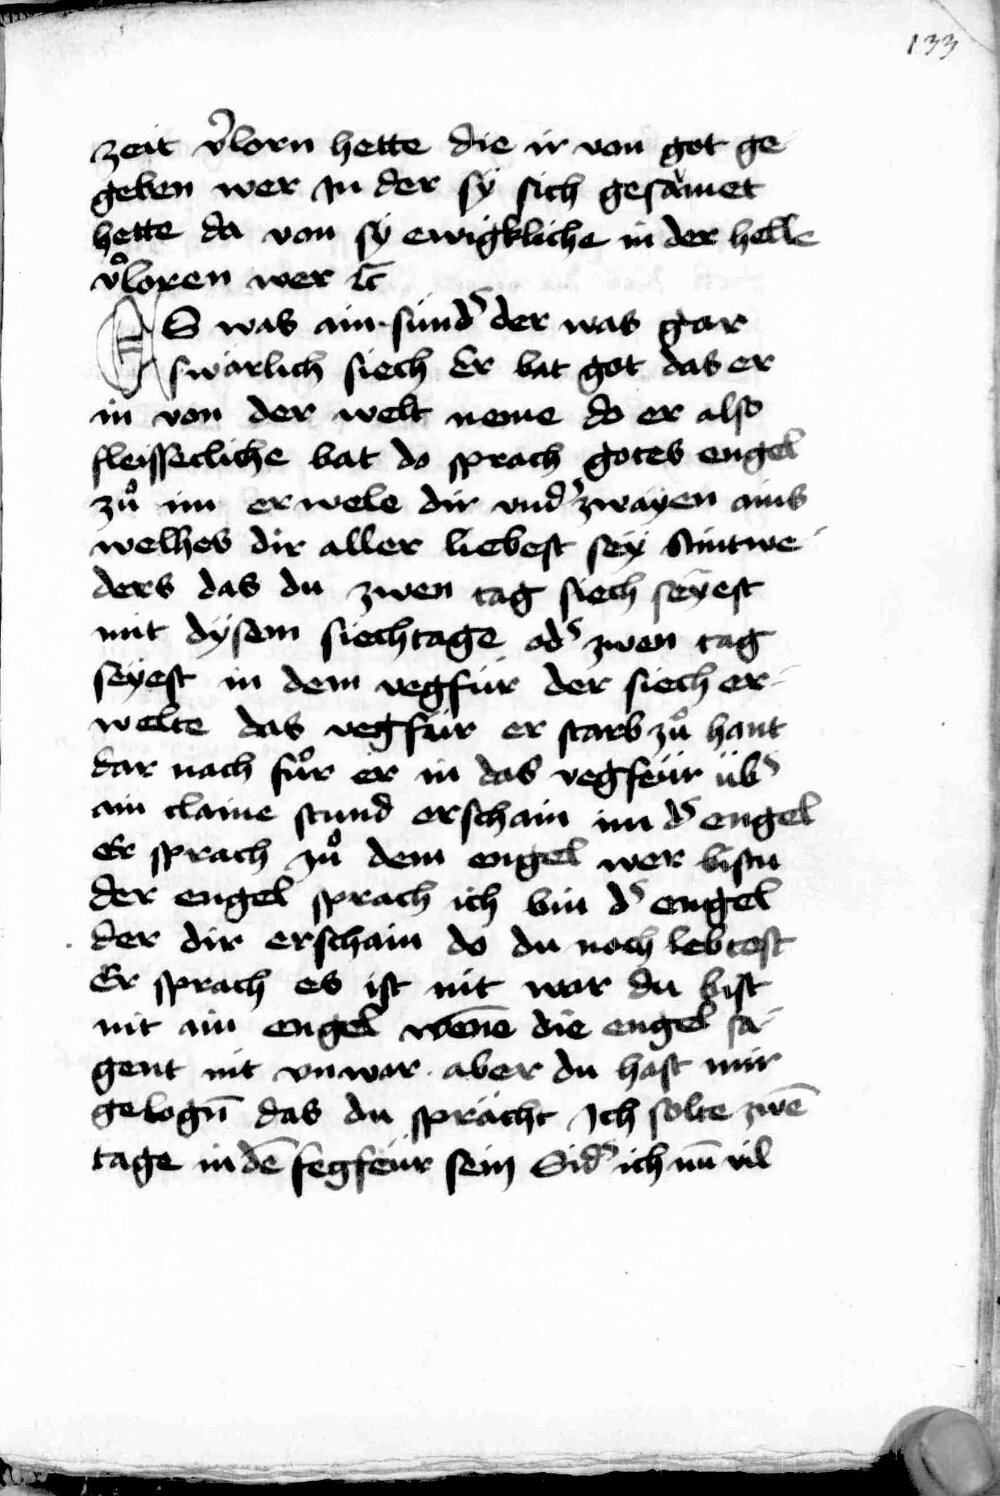 133
zeit v̉lorn hette die ir von got ge
geben wer In der sÿ sich gesämet
hette da von sÿ ewigkliche in der helle
v̊loren wer ꝛc̄
ES was ain sündˢ der was gar
swärlich siech Er bat got das er
in von der welt neme do er also
fleissecliche bat do sprach gotes engel
zů im erwele dir vndˢ zwayen ains
welhes dir aller liebest seÿ Aintwe
ders das du zwen tag siech seÿest
mit dÿsem siechtage odˢ zwen tag
seÿest in dem vegfür der siech er
welte das vegfür er starb zů hant
dar nach fůr er in das vegfeür übˢ
ain claine stund erschain im dˢ engel
Er sprach zů dem engel wer bistu
der engel sprach ich bin dˢ engel
der dir erschain do du noch lebtest
Er sprach es ist nit war du bist
nit ain engel wēne die engel sa
gent nit vnwar aber du hast mir
gelogn̄ das du sprächt Ich solte zwē
tage in dē fegfeür sein Sidˢ ich nū vil